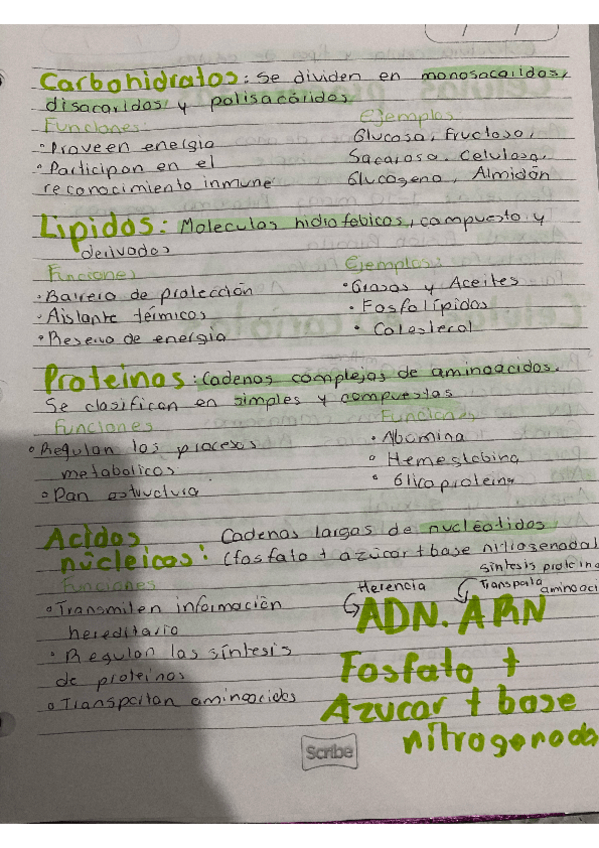 Carbohidratos: Se dividen en monosacaridos,
disacaridos y polisacáridos
Funciones: Ejemplos
• Proveen energia Glucosa, Fructosa,
• Participan en el Sacarosa, Celulosa,
reconocimiento inmune Glucogeno, Almidón
Lipidos: Moleculas hidrofobicas, compuesto y
derivados
Funciones Ejemplos:
• Barrera de protección • Grasas y Aceites
• Aislante térmicos • Fosfolípidos
• Reserva de energia • Colesterol
Proteinas: Cadenas complejas de aminoacidos.
Se clasifican en simples y compuestas
Funciones Funciones
• Regulan los procesos • Abomina
metabolicos • Hemoglobina
• Dan estructura • Glicoproteina
Acidos Cadenas largas de nucleótidos
núcleicos: (fosfato + azucar + base nitrogenada)
Funciones sintesis proteina
Herencia Transporta aminoaci
• Transmiten información ADN. ARN
hereditario
• Regulan las síntesis Fosfato +
de proteinas
• Transportan aminoacidos Azucar + base
nitrogenada
Scribe